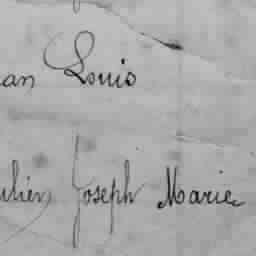 an Louis
ulien Joseph Marie